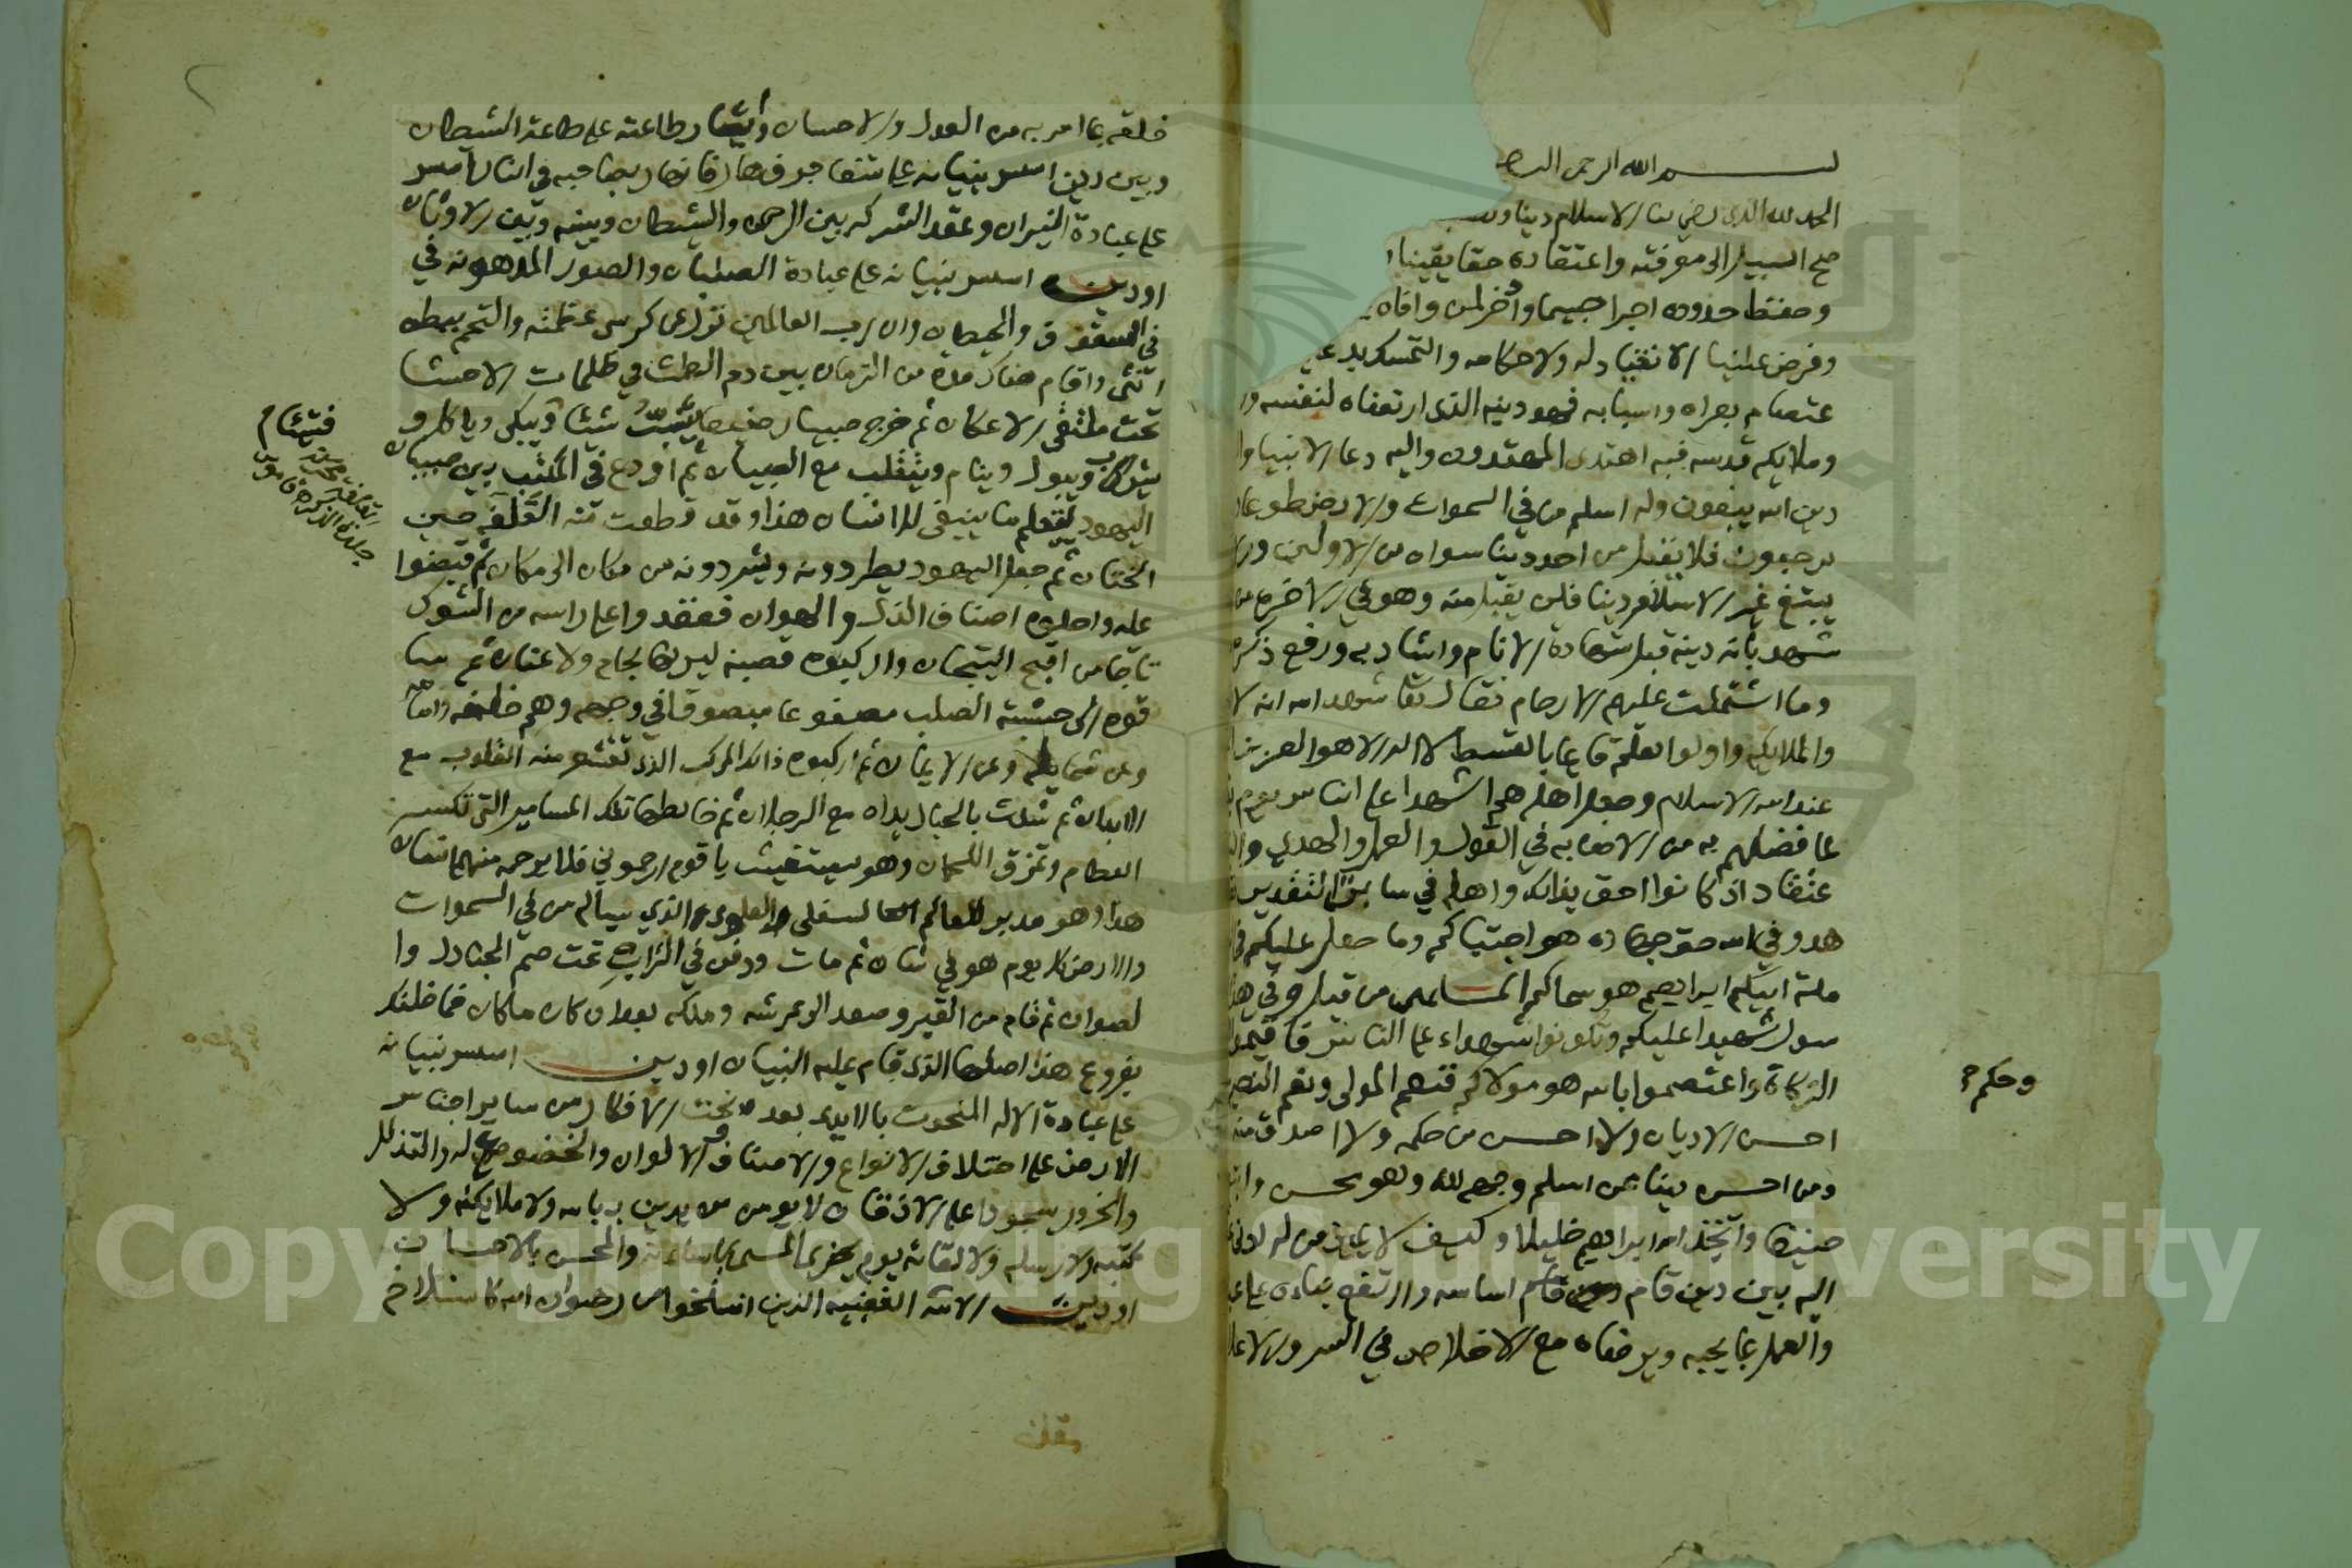 بسم الله الرحمن الرحيم
الحمد لله الذي رضي لنا الاسلام دينا ونصب
صح السبيل الى معرفته واعتقاده حقا يقينا
وحفظ حدوده اجرا جسيما وذخر لمن وافاه
وفرض علينا الانقياد له ولاحكامه والتمسك بد
عتصام بعراه واسبابه فهو دينه الذي ارتضاه لنفسه و
وملايكة قدسه فبه اهتدى المهتدون واليه دعا الانبيا وا
دين الله يبغون وله اسلم من في السموات والارض طوعا
يرجعون فلا يقبل من احد دينا سواه من الاولين و
يبتغ غير الاسلام دينا فلن يقبل منه وهو في الاخرة من
شهد بانه دينه قبل شهادة الانام واشاد به ورفع ذكره
وما اشتملت عليهم الارحام فقال تعا شهد الله انه لا
والملايكة واولوا العلم قايما بالقسط لا اله الا هو العزيز
عند الله الاسلام وجعل اهله هم الشهدا على الناس يوم
بما فضلهم به من الاصابه في القول والعمل والهدى وال
عتقاد اذ كانوا احق بذلك واهله في سابق التقدير
هدوا في الله حق جهاده هو اجتباكم وما جعل عليكم في
ملة ابيكم ابراهيم هو سماكم المسلمين من قبل وفي هذا
سول شهيدا عليكم وتكونوا شهداء على الناس فاقيموا
الزكاة واعتصموا بالله هو مولاكم فنعم المولى ونعم النصير
وحكم
احسن الاديان ولا احسن من حكمه ولا اصدق منه
ومن احسن دينا ممن اسلم وجهه لله وهو محسن وا
حنيفا واتخذ الله ابراهيم خليلا وكيف لا يميز من له ادنى
اليه بين دين قام اساسه وارتفع بناءه على
والعمل بما يحبه ويرضاه مع الاخلاص في السر والاعلا
خلقه بما امر به من العدل والاحسان وايثار طاعته على طاعة الشيطان
وبين دين اسس بنيانه على شفا جرف هار فانهار بصاحبه في النار اسس
على عبادة النيران وعقد الشركه بين الرحمن والشيطان وبينه وبين الاوثان
او دين اسس بنيانه على عبادة الصلبان والصور المدهونه في
في السقوف والحيطان وان رب العالمين نزل عن كرسي عظمته والتحم ببطن
انثى واقام هناك مدة من الزمان بين دم الطمث في ظلمات الاحشا
تحت ملتقى الاعكان ثم خرج صبيا رضيعا يشب شيئا ويبكي وياكل و
يشرب ويبول وينام ويتقلب مع الصبيان ثم اودع في المكتب بين صبيان
اليهود ليتعلم ما ينبغي للانسان هذا وقد قطعت منه القلفه حين
الختان ثم جعل اليهود يطردونه ويشردونه من مكان الى مكان ثم قبضوا
عليه واحلوه اصناف الذل والهوان فعقدوا على راسه من الشوك
تاجا من اقبح التيجان واركبوه قصبه ليس لها لجام ولا عنان ثم سا
قوه الى خشبة الصلب مصفوعا مبصوقا في وجهه وهم خلفه وامامه
وعن شمايله وعن الايمان ثم اركبوه ذلك المركب الذي تقشعر منه القلوب مع
الابدان ثم شدت بالحبال يداه مع الرجلان ثم خالطها تلك المسامير التي تكسر
العظام وتمزق اللحمان وهو يستغيث يا قوم ارحموني فلا يرحمه منهم انسان
هذا وهو مدبر العالم السفلي والعلوي الذي يساله من في السموات
والارض كل يوم هو في شان ثم مات ودفن في التراب تحت صم الجنادل وا
لصوان ثم قام من القبر وصعد الى عرشه وملكه بعد ان كان ما كان فما ظنك
بفروع هذا اصلها الذي قام عليه البنيان او دين اسس بنيانه
على عبادة الاله المنحوت بالايدي بعد نحت الافكار من ساير اجناس
الارض على اختلاف الانواع والاصناف والالوان والخضوع له والتذلل
والخرور سجودا على الاذقان لا يومن من يدين به بالله ولا ملايكته ولا
كتبه ولا رسله ولا لقائه يوم يجزى المسيء باساءته والمحسن بالاحسان
او دين الامة الغضبيه الذين انسلخوا من رضوان الله كانسلاخ
القلفة
جلدة الذكر قاموس
Copyright © King Saud University